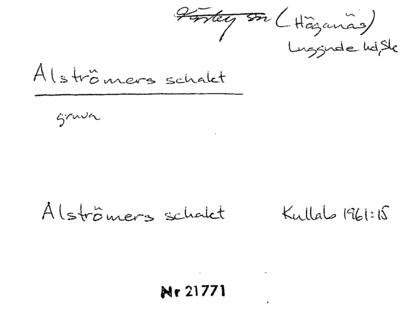 (Höganäs)
Luggude hd, Sk
Alströmers schakt
gruva
Alströmers schakt Kullab 1961:15
Nr 21771